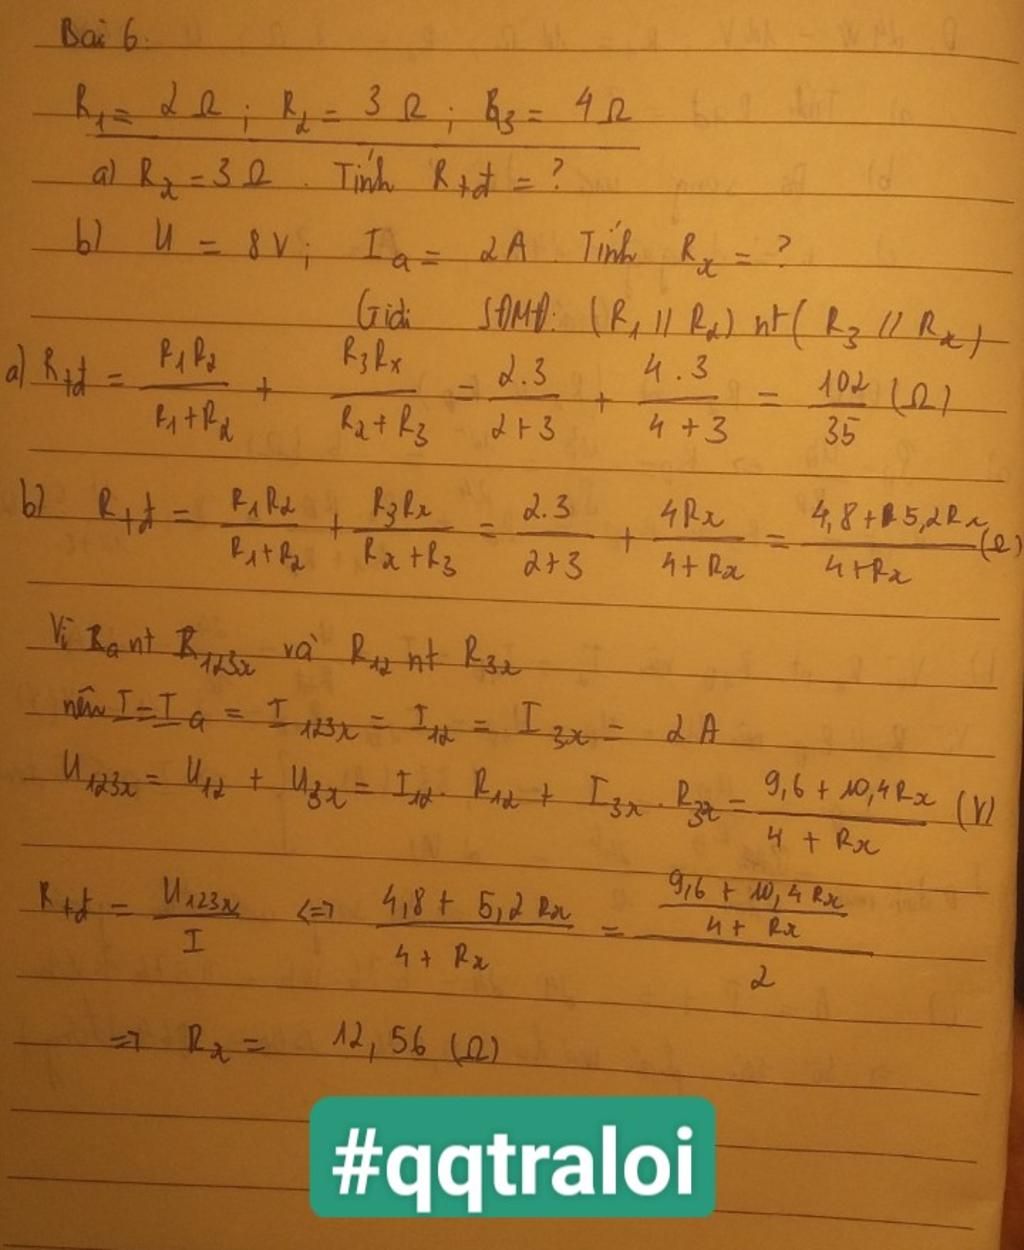 Bài 6.
R1 = 2 Ω ; R2 = 3 Ω ; R3 = 4 Ω
a) Rx = 3 Ω . Tính Rtđ = ?
b) U = 8V ; Ia = 2A Tính Rx = ?
Giải SĐMĐ: (R1 // R2) nt ( R3 // Rx)
a) Rtđ = R1R2 / R1+R2 + R3Rx / R2+R3 = 2.3 / 2+3 + 4.3 / 4+3 = 102 / 35 (Ω)
b) Rtđ = R1R2 / R1+R2 + R3Rx / Rx+R3 = 2.3 / 2+3 + 4Rx / 4+Rx = 4,8+5,2Rx / 4+Rx (Ω)
Vì Ra nt R123x và R12 nt R3x
nên I=Ia = I123x = I12 = I3x = 2A
U123x = U12 + U3x = I12 . R12 + I3x . R3x = 9,6 + 10,4Rx / 4 + Rx (V)
Rtđ = U123x / I <=> 4,8 + 5,2Rx / 4 + Rx = 9,6 + 10,4Rx / 4 + Rx / 2
=> Rx = 12,56 (Ω)
#qqtraloi